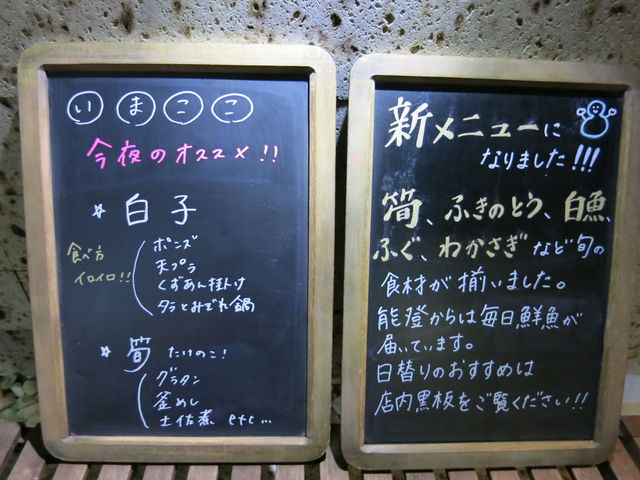 いまここ
今夜のオススメ!!
☆ 白子
食べ方
イロイロ!!
ポンズ
天プラ
くずあん掛け
タラとみぞれ鍋
☆ 筍 たけのこ!
グラタン
釜めし
土佐煮 etc...
新メニューに
なりました!!!
筍、ふきのとう、白魚、
ふぐ、わかさぎなど旬の
食材が揃いました。
能登からは毎日鮮魚が
届いています。
日替りのおすすめは
店内黒板をご覧ください!!